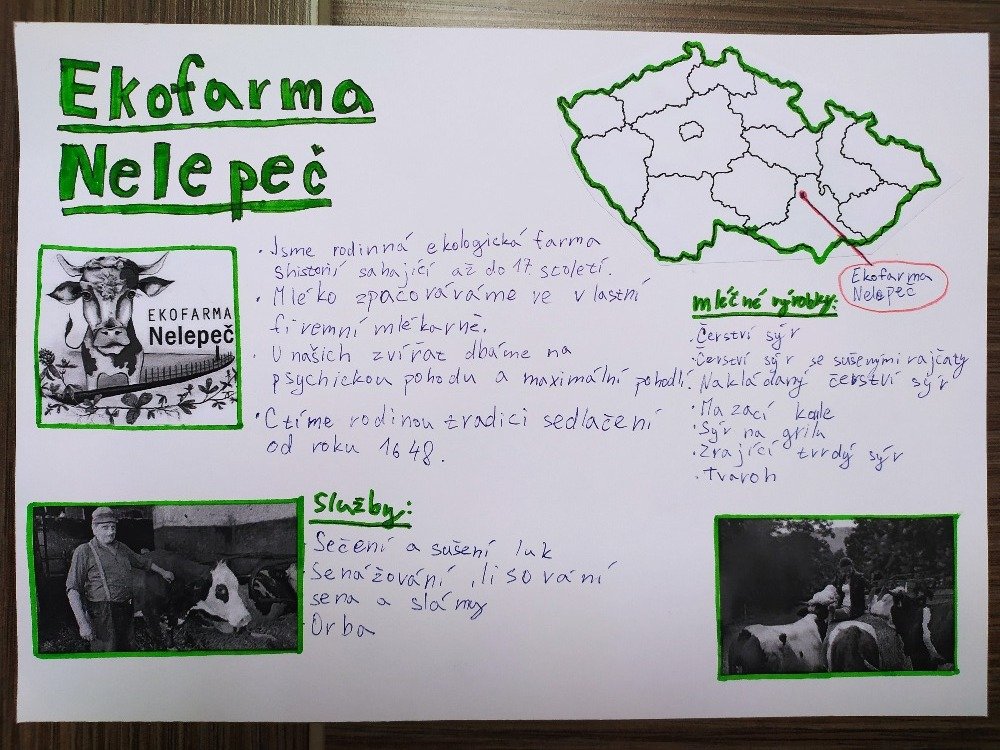 Ekofarma
Nelepeč
EKOFARMA
Nelepeč
• Jsme rodinná ekologická farma
s historií sahající až do 17 století.
• Mléko zpacováváme ve vlastní
firemní mlékarně.
• U našich zvířat dbáme na
psychickou pohodu a maximální pohodlí.
• Ctíme rodinou tradici sedlačení
od roku 1648.
Ekofarma
Nelepeč
mléčné výrobky:
• Čerství sýr
• Čerství sýr se sušenými rajčaty
• Nakládaný čerství sýr
• Mazací kaše
• Sýr na grilu
• Zrající tvrdý sýr
• Tvaroh
Služby:
Sečení a sušení luk
Senážování, lisování
sena a slámy
• Orba